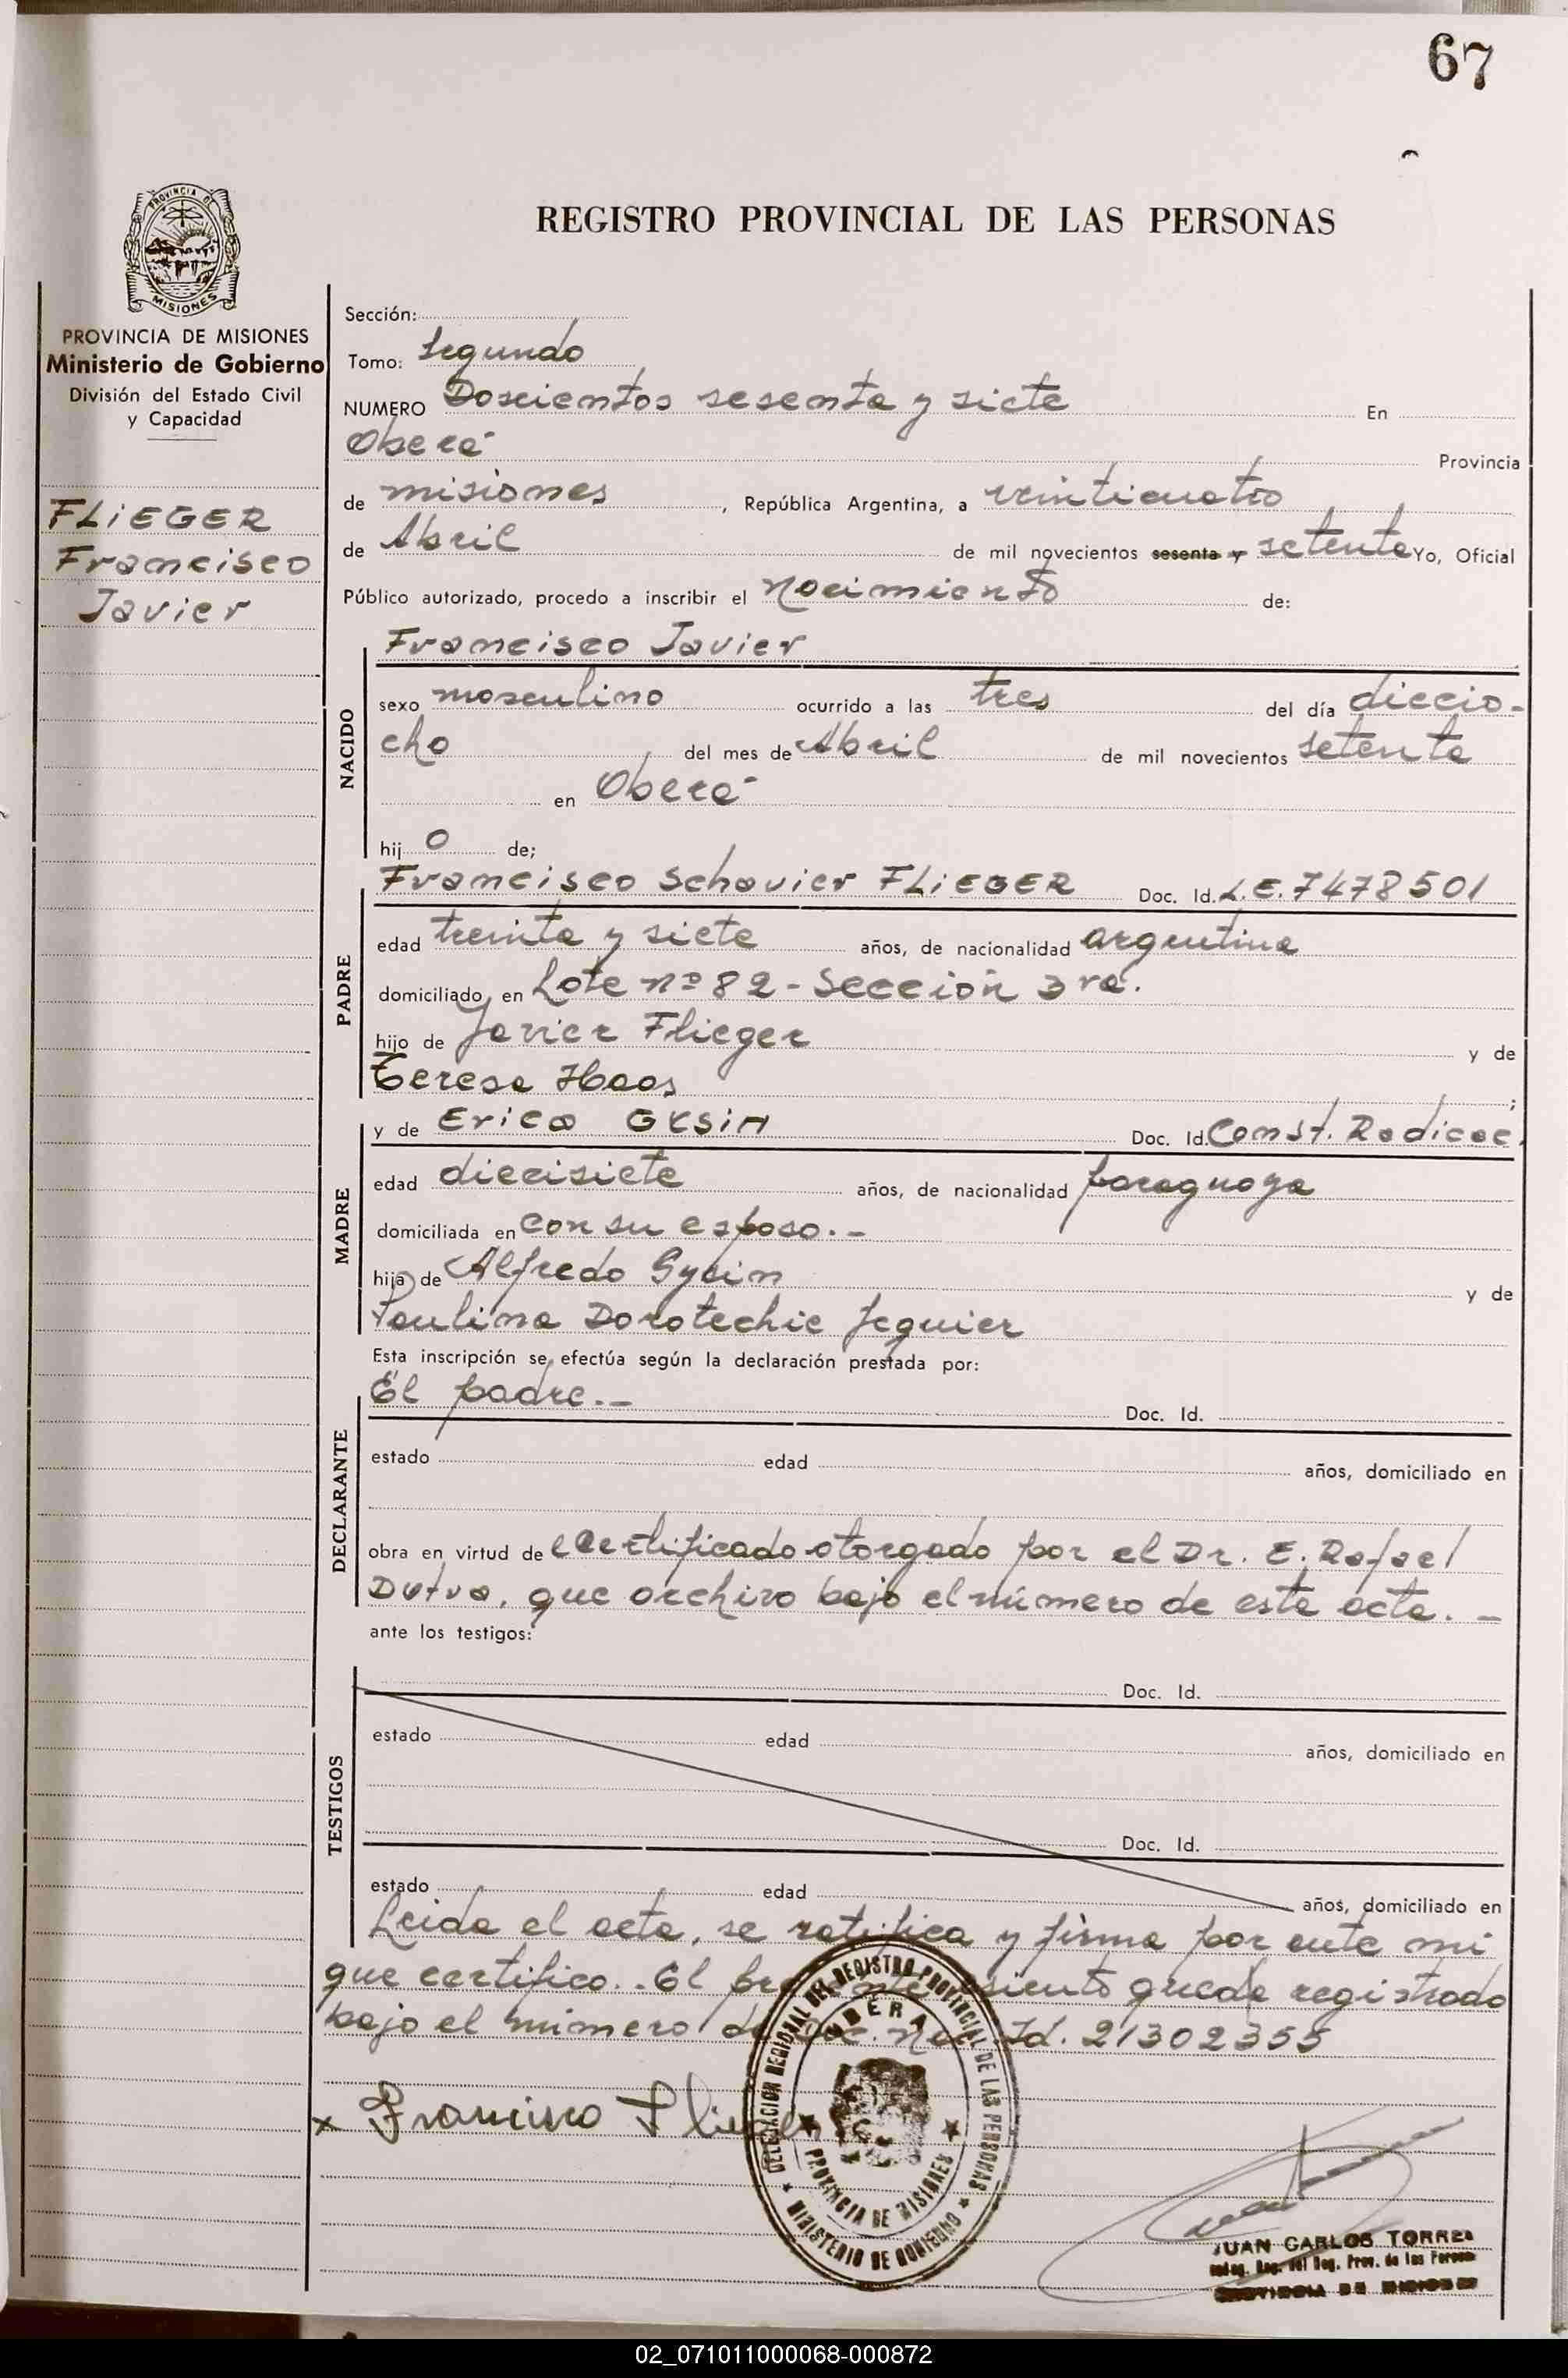 67
REGISTRO PROVINCIAL DE LAS PERSONAS
PROVINCIA DE
MISIONES
PROVINCIA DE MISIONES
Ministerio de Gobierno
División del Estado Civil
y Capacidad
FLiEGER
Francisco
Javier
Sección:
Tomo: Segundo
NUMERO Doscientos sesenta y siete En
Oberá Provincia
de misiones, República Argentina, a veinticuatro
de Abril de mil novecientos sesenta y setenta Yo, Oficial
Público autorizado, procedo a inscribir el Nacimiento de:
NACIDO
Francisco Javier
sexo masculino ocurrido a las tres del día diecio-
cho del mes de Abril de mil novecientos setenta
en Oberá
hij o de;
PADRE
Francisco Schavier FLiEGER Doc. Id. L.E. 7478501
edad treinta y siete años, de nacionalidad argentina
domiciliado en Lote nº 82 - Sección 3ra.
hijo de Javier Flieger y de
Teresa Haas;
MADRE
y de Erica Doc. Id. Const. Radicac.
edad diecisiete años, de nacionalidad paraguaya
domiciliada en con su esposo.-
hija de Alfredo Gysin y de
Paulina Dorotechie Jequier
Esta inscripción se efectúa según la declaración prestada por:
DECLARANTE
El padre.- Doc. Id.
estado edad años, domiciliado en
obra en virtud de certificado otorgado por el Dr. E. Rafael
Dutra, que archivo bajo el número de esta acta. -
ante los testigos:
TESTIGOS
Doc. Id.
estado edad años, domiciliado en
Doc. Id.
estado edad años, domiciliado en
Leida el acta, se ratifica y firma por ante mi
que certifico.. El presente asiento queda registrado
bajo el número de Doc. Nac. Id. 21302355
x Francisco Flieger
DELEGACION REGIONAL DEL REGISTRO PROVINCIAL DE LAS PERSONAS
OBERA
PROVINCIA DE MISIONES
MINISTERIO DE GOBIERNO
JUAN CARLOS TORRES
Reg. del Reg. Prov. de las Personas
PROVINCIA DE MISIONES
02_071011000068-000872